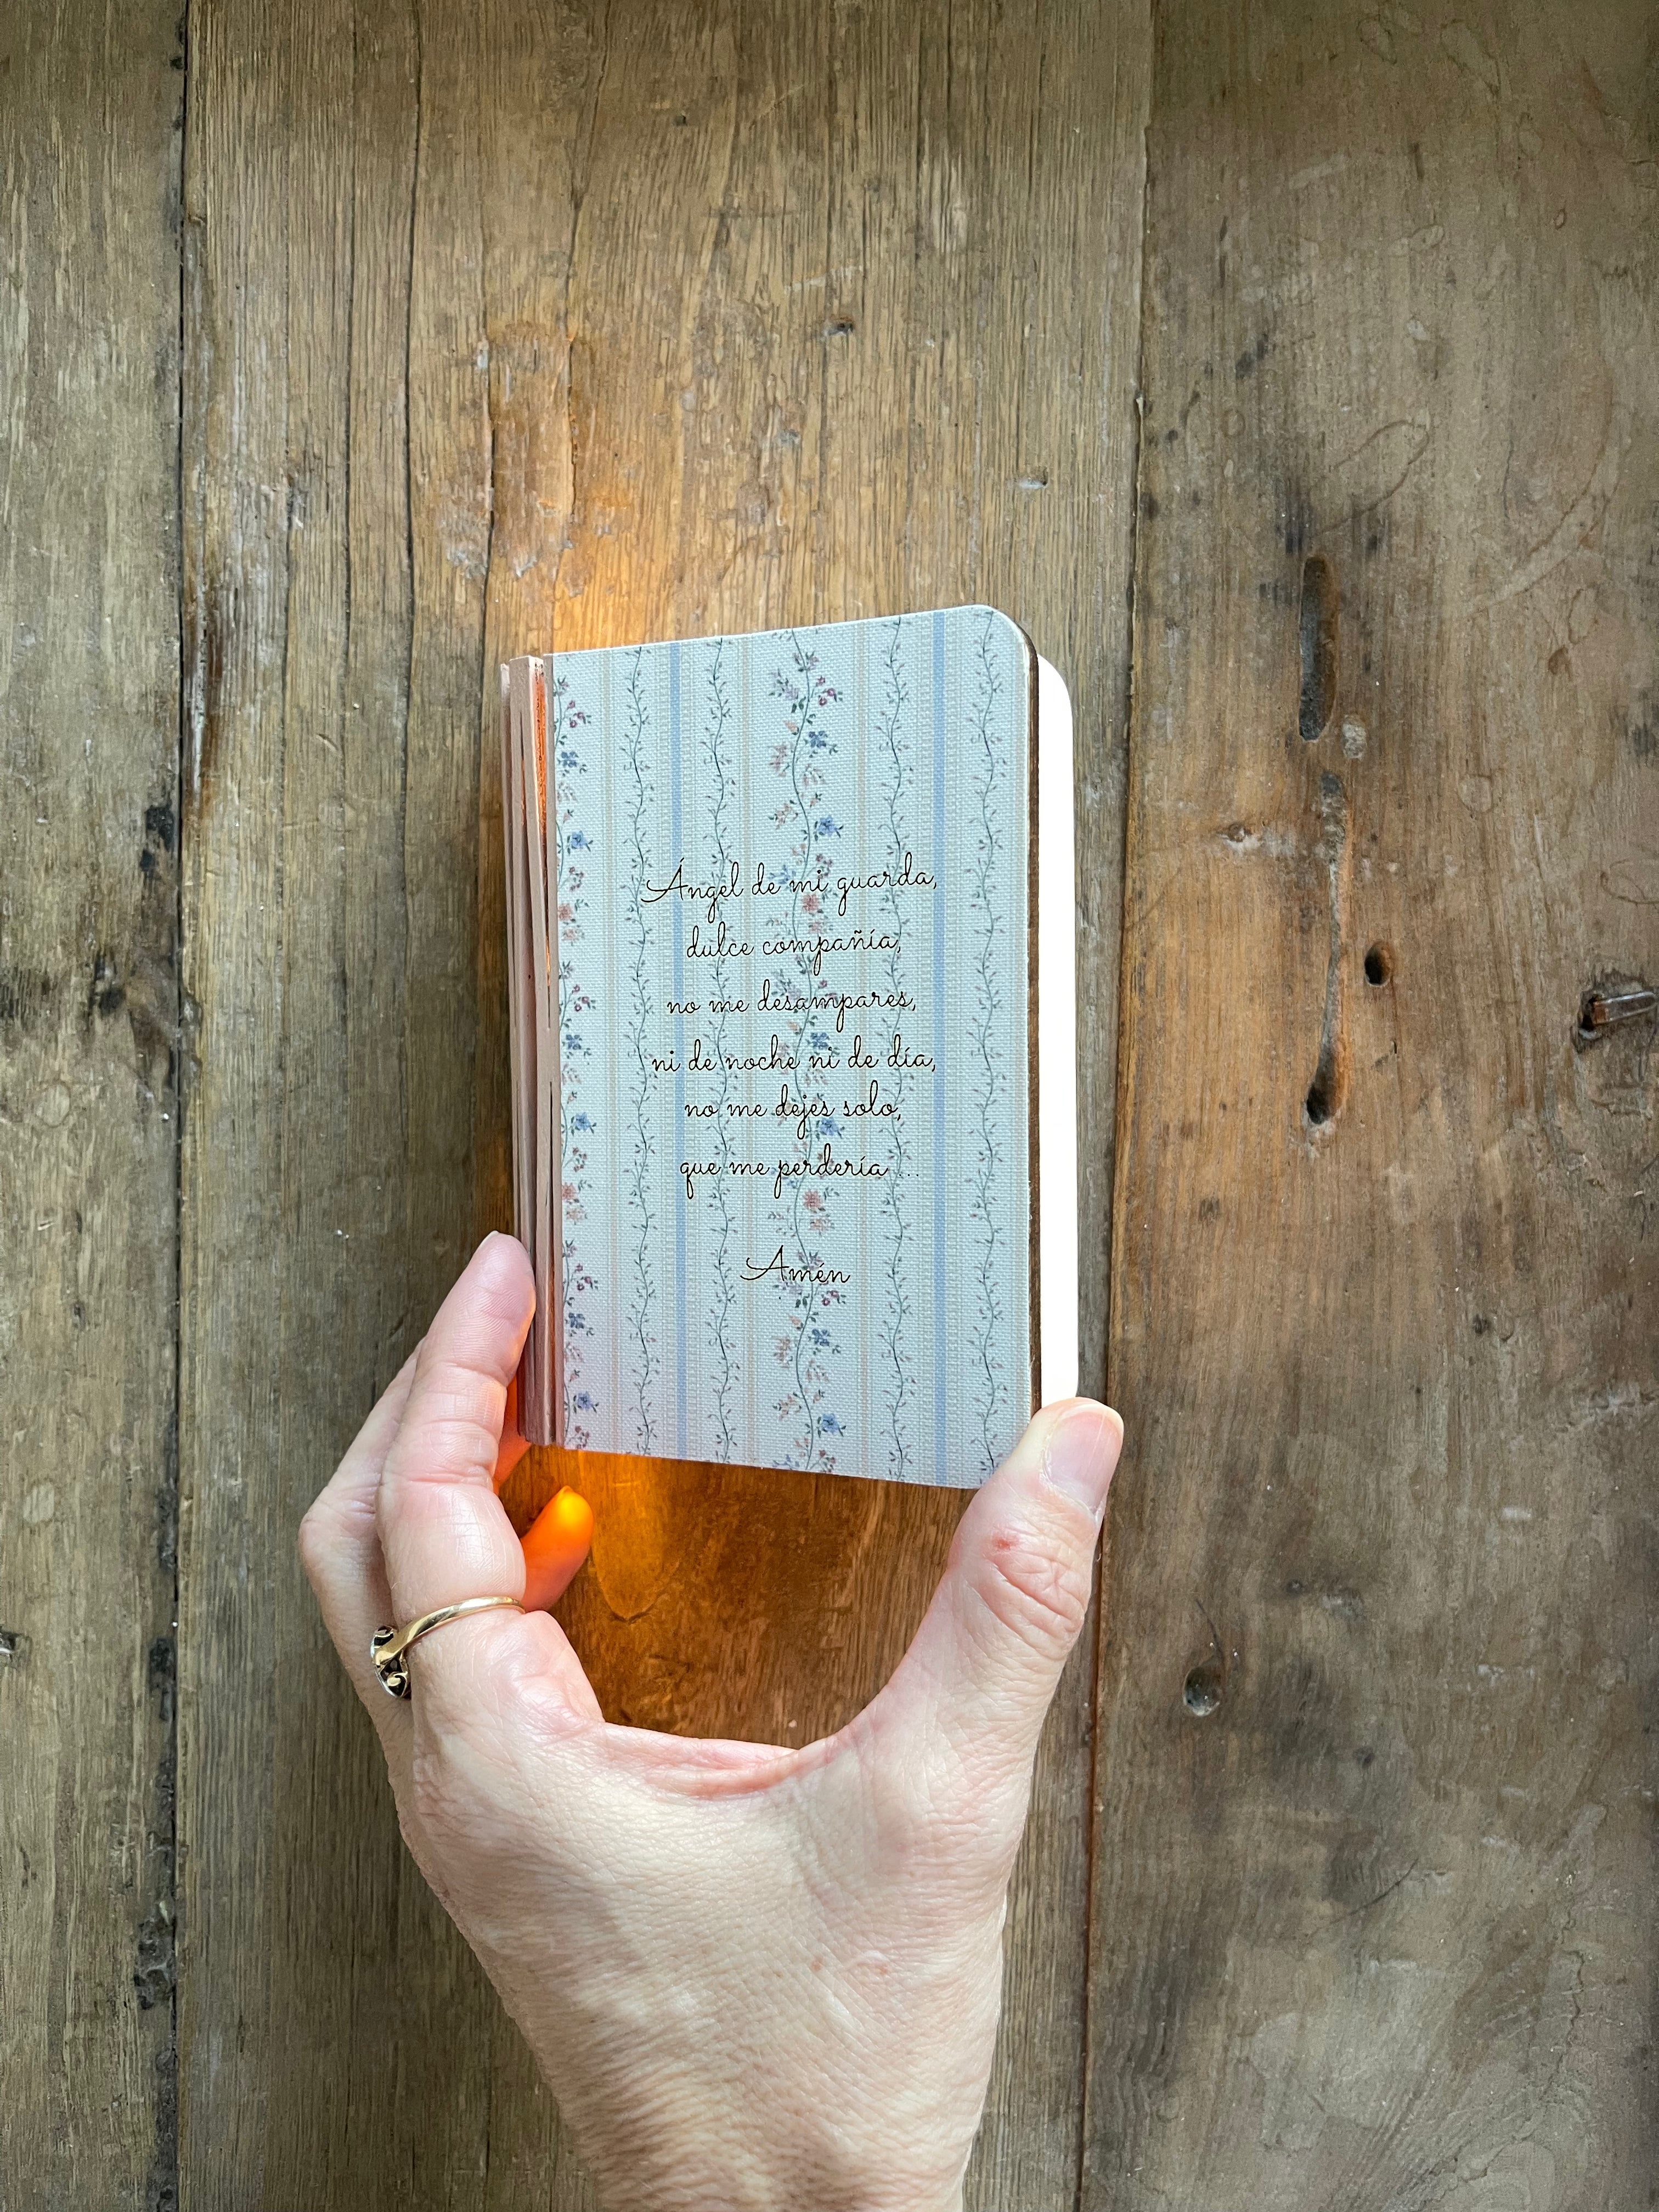 Ángel de mi guarda,
dulce compañía,
no me desampares,
ni de noche ni de día,
no me dejes solo,
que me perdería ...
Amén